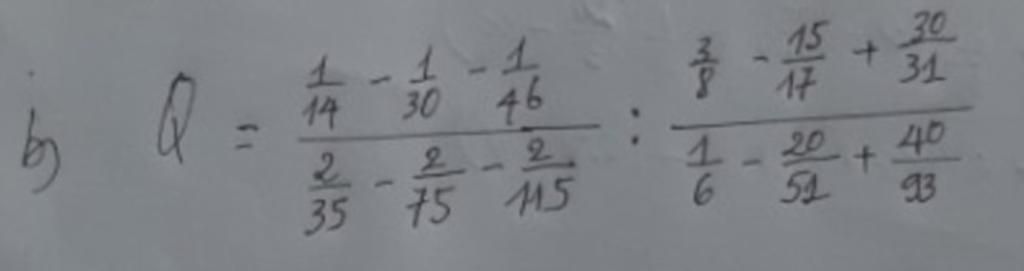 b) Q = \frac{\frac{1}{14} - \frac{1}{30} - \frac{1}{46}}{\frac{2}{35} - \frac{2}{75} - \frac{2}{115}} : \frac{\frac{3}{8} - \frac{15}{17} + \frac{30}{31}}{\frac{1}{6} - \frac{20}{51} + \frac{40}{93}}